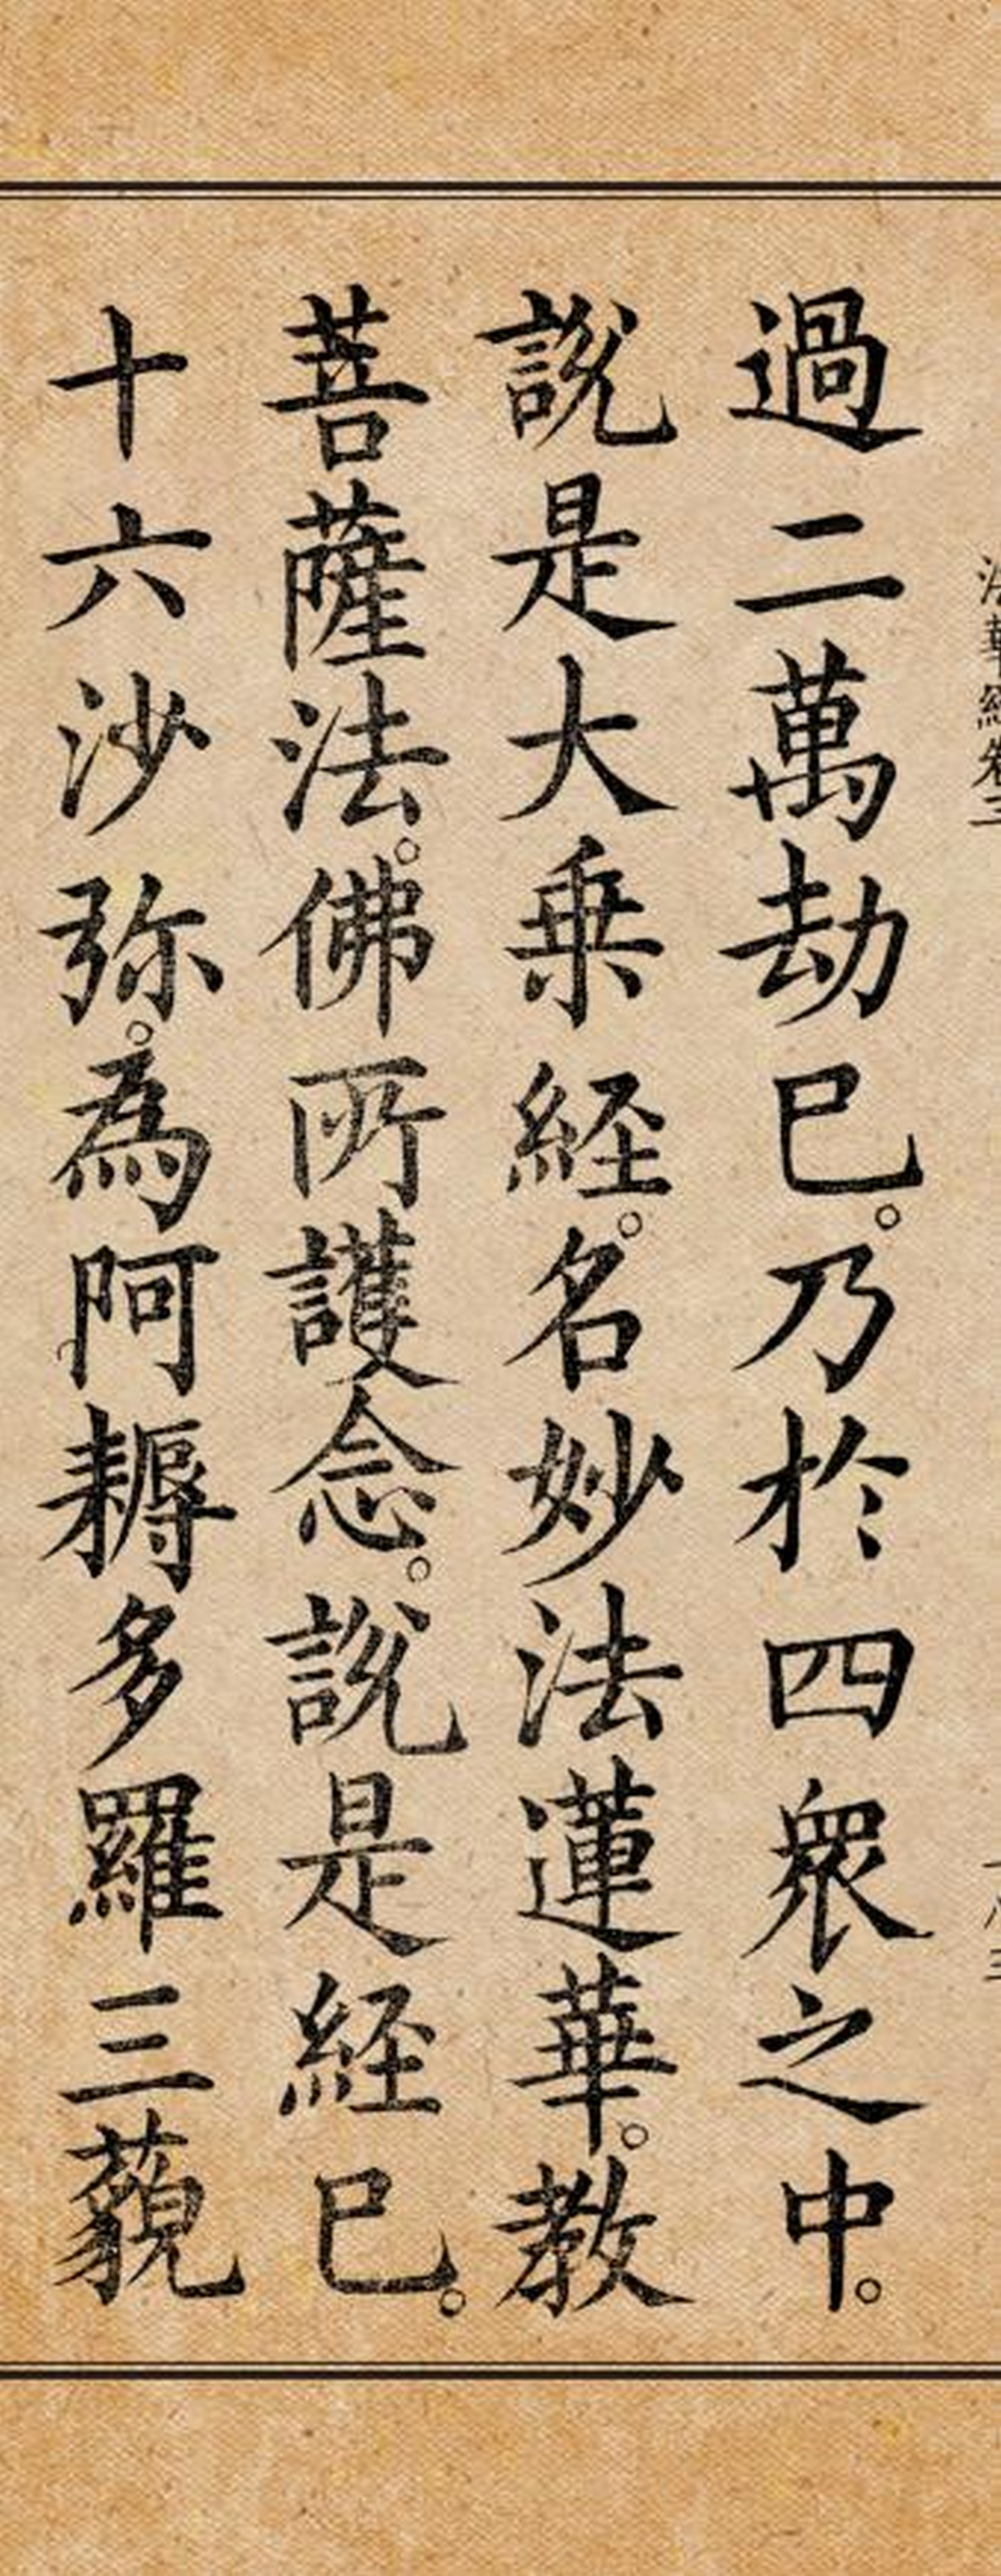 法華經卷三
過二萬劫已。乃於四眾之中。
說是大乗経。名妙法蓮華。教
菩薩法。佛所護念。說是経已。
十六沙弥。為阿耨多羅三藐